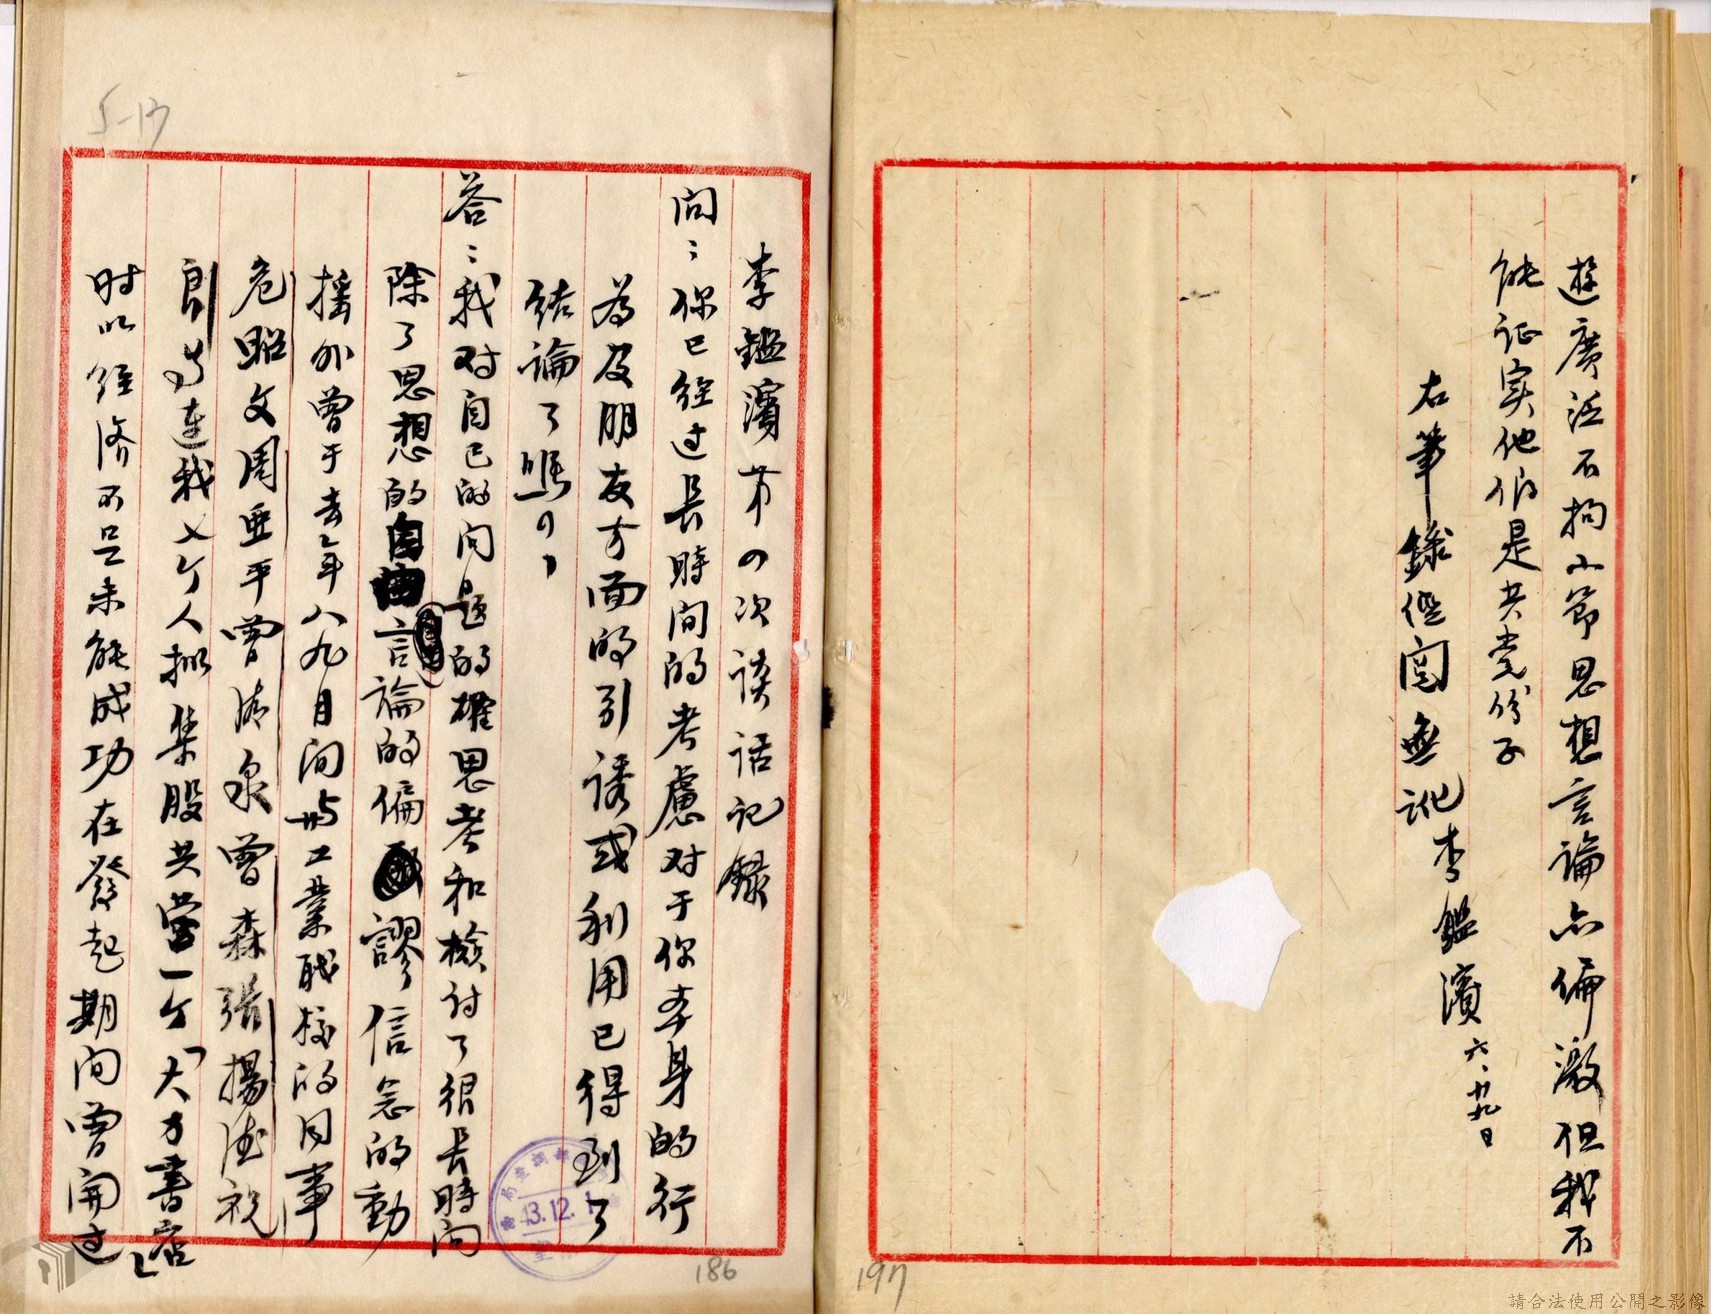 遊廣泛不拘小節思想言論亦偏激但我不
能证实他们是共党份子
右筆錄經閱無訛李鑑濱六、廿九日
197
5-17
李鑑濱第四次談话记錄
问：你已经过長時间的考慮对于你本身的行
為及朋友方面的引誘或利用已得到了
结論了嗎？
答：我对自己的问題的確思考和檢討了很長時间
除了思想的言論的偏謬信念的動
摇外曾于去年八九月间與工業职校的同事
危昭文周亜平曾濤泉曾森張揚德祝
良連我七个人拟集股共营一个「大方書店」
时以经济不足未能成功在發起期间曾開过
13.12.1
186
請合法使用公開之影像